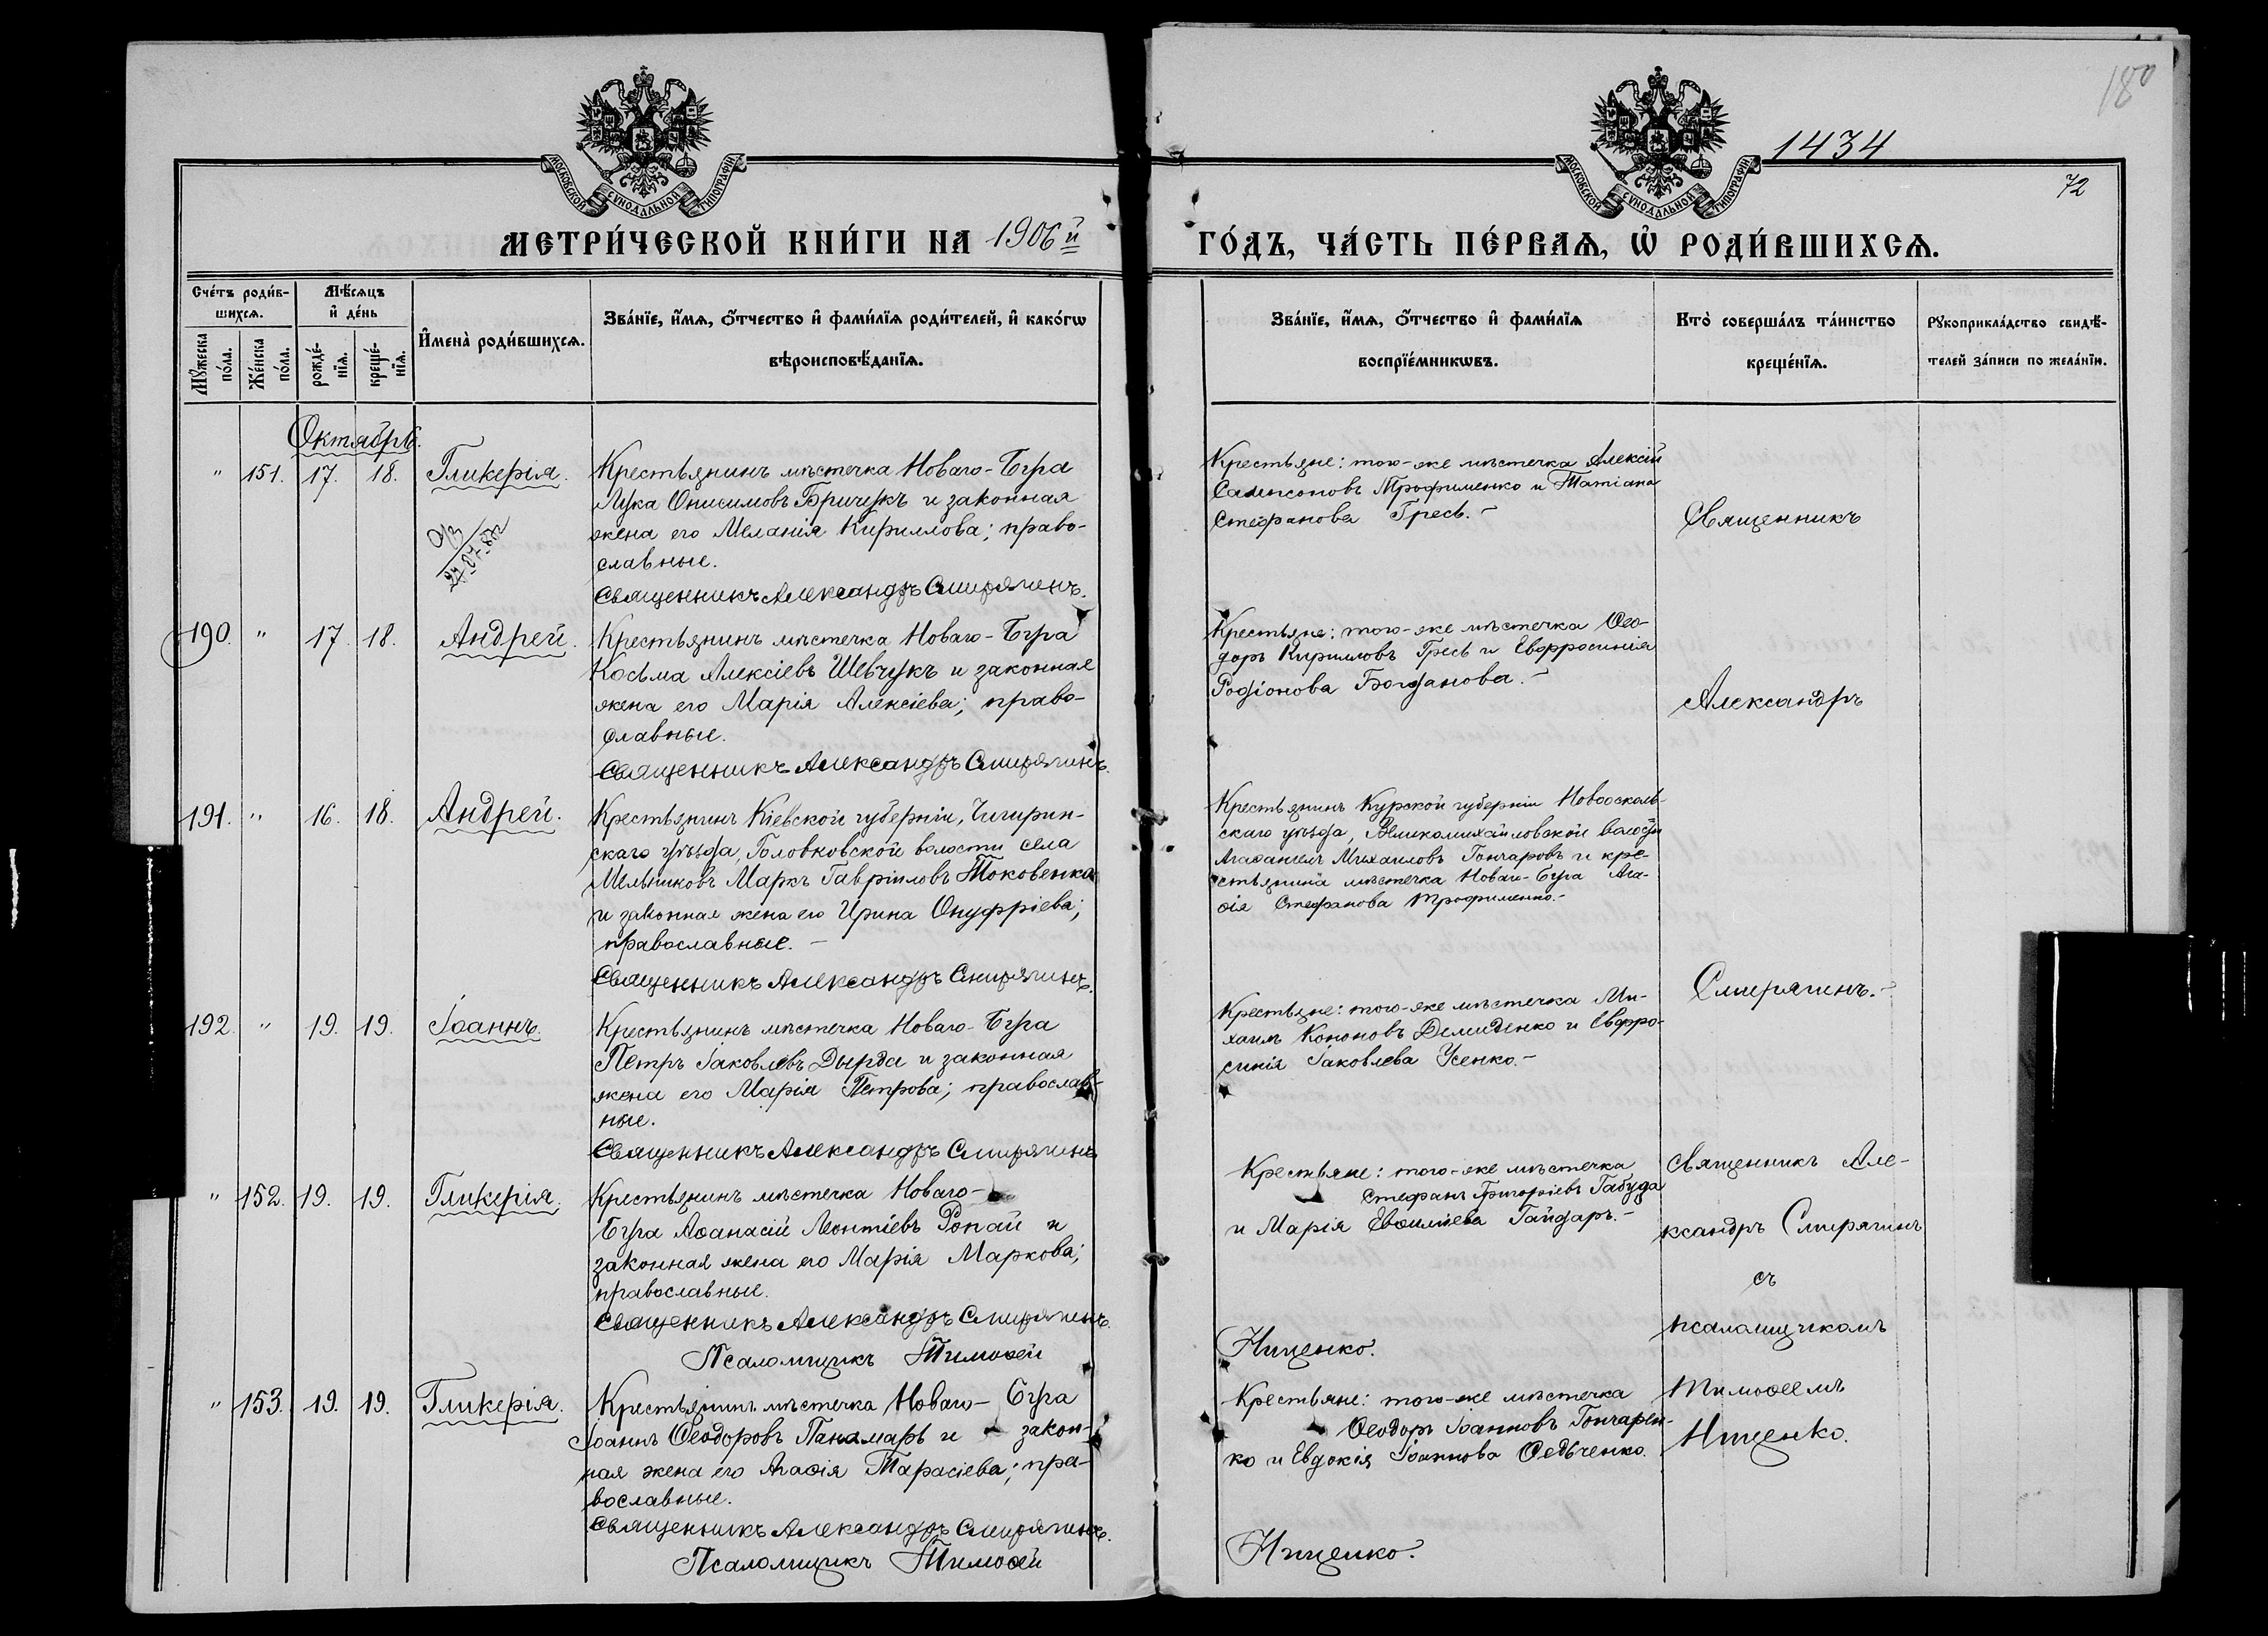 180
1434
72
МОСКОВСКОЙ СѴНОДАЛЬНОЙ ТИПОГРАФІИ
МОСКОВСКОЙ СѴНОДАЛЬНОЙ ТИПОГРАФІИ
МЕТРИ́ЧЕСКОЙ КНИ́ГИ НА 1906й
ГО́ДЪ, ЧА́СТЬ ПЕ́РВАѦ, Ѡ҆ РОДИ́ВШИХСѦ.
Сче́тъ роди́в-
шихсѧ.
Мꙋ́жеска по́ла.
Же́нска по́ла.
Мѣ́сѧцъ
и҆ де́нь
рожде́-нїѧ.
креще́-нїѧ.
И҆мена̀ роди́вшихсѧ.
Зва́нїе, и҆́мѧ, ѻ҆́тчество и҆ фами́лїѧ роди́телей, и҆ како́гѡ
вѣроисповѣ́данїѧ.
Зва́нїе, и҆́мѧ, ѻ҆́тчество и҆ фами́лїѧ
воспрїе́мникѡвъ.
Кто̀ соверша́лъ та́инство
креще́нїѧ.
Рꙋкоприкла́дство свидѣ́-
телей за́писи по жела́нїю.
Октябрь.
" 151. 17. 18. Гликерія.
Крестьянинъ мѣстечка Новаго-Буга
Лука Онисимовъ Бричукъ и законная
жена его Меланія Кириллова; право-
славные.
Священникъ Александръ Смирягинъ.
Крестьяне: того-же мѣстечка Алексій
Сампсоновъ Трофименко и Татіана
Стефанова Гресь.-
Священникъ
190. " 17. 18. Андрей.
Крестьянинъ мѣстечка Новаго-Буга
Косьма Алексіевъ Шевчукъ и законная
жена его Марія Алексіева; право-
славные.
Священникъ Александръ Смирягинъ.
Крестьяне: того-же мѣстечка Ѳео-
доръ Кирилловъ Гресь и Евфросинія
Родіонова Богданова.-
Александръ
191. " 16. 18. Андрей.
Крестьянинъ Кіевской губерніи, Чигирин-
скаго уѣзда, Головковской волости села
Мельниковъ Маркъ Гавріиловъ Токовенко
и законная жена его Ирина Онуфріева;
православные.-
Священникъ Александръ Смирягинъ.
Крестьянинъ Курской губерніи Новоосколь-
скаго уѣзда, Великомихайловской волости
Агаѳангелъ Михаиловъ Гончаровъ и кре-
стьянина мѣстечка Новаго-Буга Ага-
ѳія Стефанова Трофименко.-
Смирягинъ.-
192. " 19. 19. Іоаннъ.
Крестьянинъ мѣстечка Новаго-Буга
Петръ Іаковлевъ Дырда и законная
жена его Марія Петрова; православ-
ные.
Священникъ Александръ Смирягинъ
Крестьяне: того-же мѣстечка Ми-
хаилъ Кононовъ Демиденко и Евфро-
синія Іаковлева Усенко.-
" 152. 19. 19. Гликерія.
Крестьянинъ мѣстечка Новаго-
Буга Аѳанасій Леонтіевъ Ропай и
законная жена его Марія Маркова;
православные.
Священникъ Александръ Смирягинъ.
Псаломщикъ Тимоѳей
Крестьяне: того-же мѣстечка
Стефанъ Григоріевъ Габуда
и Марія Евѳиміева Гайдаръ.-
Нищенко.
Священникъ Але-
ксандръ Смирягинъ
съ
псаломщикомъ
Тимоѳеемъ
Нищенко.
" 153. 19. 19. Гликерія.
Крестьянинъ мѣстечка Новаго-Буга
Іоаннъ Ѳеодоровъ Панамарь и закон-
ная жена его Агаѳія Тарасіева; пра-
вославные.
Священникъ Александръ Смирягинъ.
Псаломщикъ Тимоѳей
Крестьяне: того-же мѣстечка
Ѳеодоръ Іоанновъ Гончарен-
ко и Евдокія Іоаннова Ѳедьченко.
Нищенко.